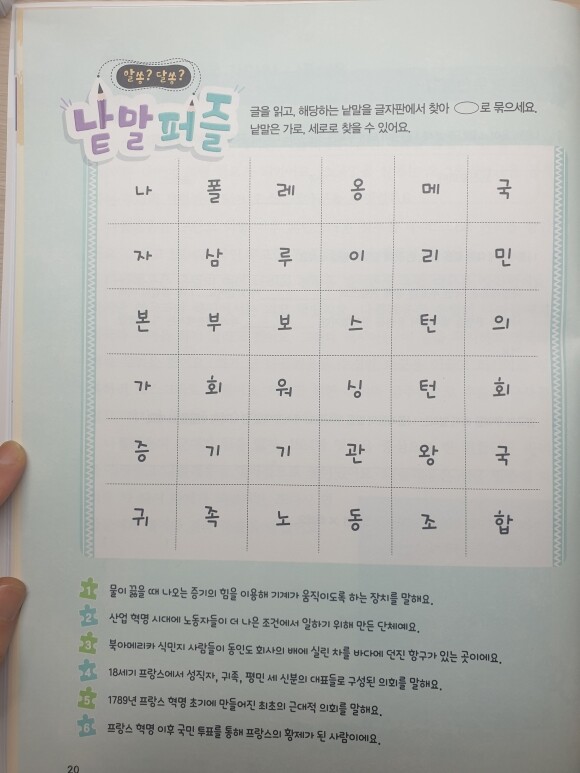 알쏭? 달쏭?
낱말 퍼즐
글을 읽고, 해당하는 낱말을 글자판에서 찾아 로 묶으세요.
낱말은 가로, 세로로 찾을 수 있어요.
나 폴 레 옹 메 국
자 삼 루 이 리 민
본 부 보 스 턴 의
가 회 워 싱 턴 회
증 기 기 관 왕 국
귀 족 노 동 조 합
1 물이 끓을 때 나오는 증기의 힘을 이용해 기계가 움직이도록 하는 장치를 말해요.
2 산업 혁명 시대에 노동자들이 더 나은 조건에서 일하기 위해 만든 단체예요.
3 북아메리카 식민지 사람들이 동인도 회사의 배에 실린 차를 바다에 던진 항구가 있는 곳이에요.
4 18세기 프랑스에서 성직자, 귀족, 평민 세 신분의 대표들로 구성된 의회를 말해요.
5 1789년 프랑스 혁명 초기에 만들어진 최초의 근대적 의회를 말해요.
6 프랑스 혁명 이후 국민 투표를 통해 프랑스의 황제가 된 사람이에요.
20